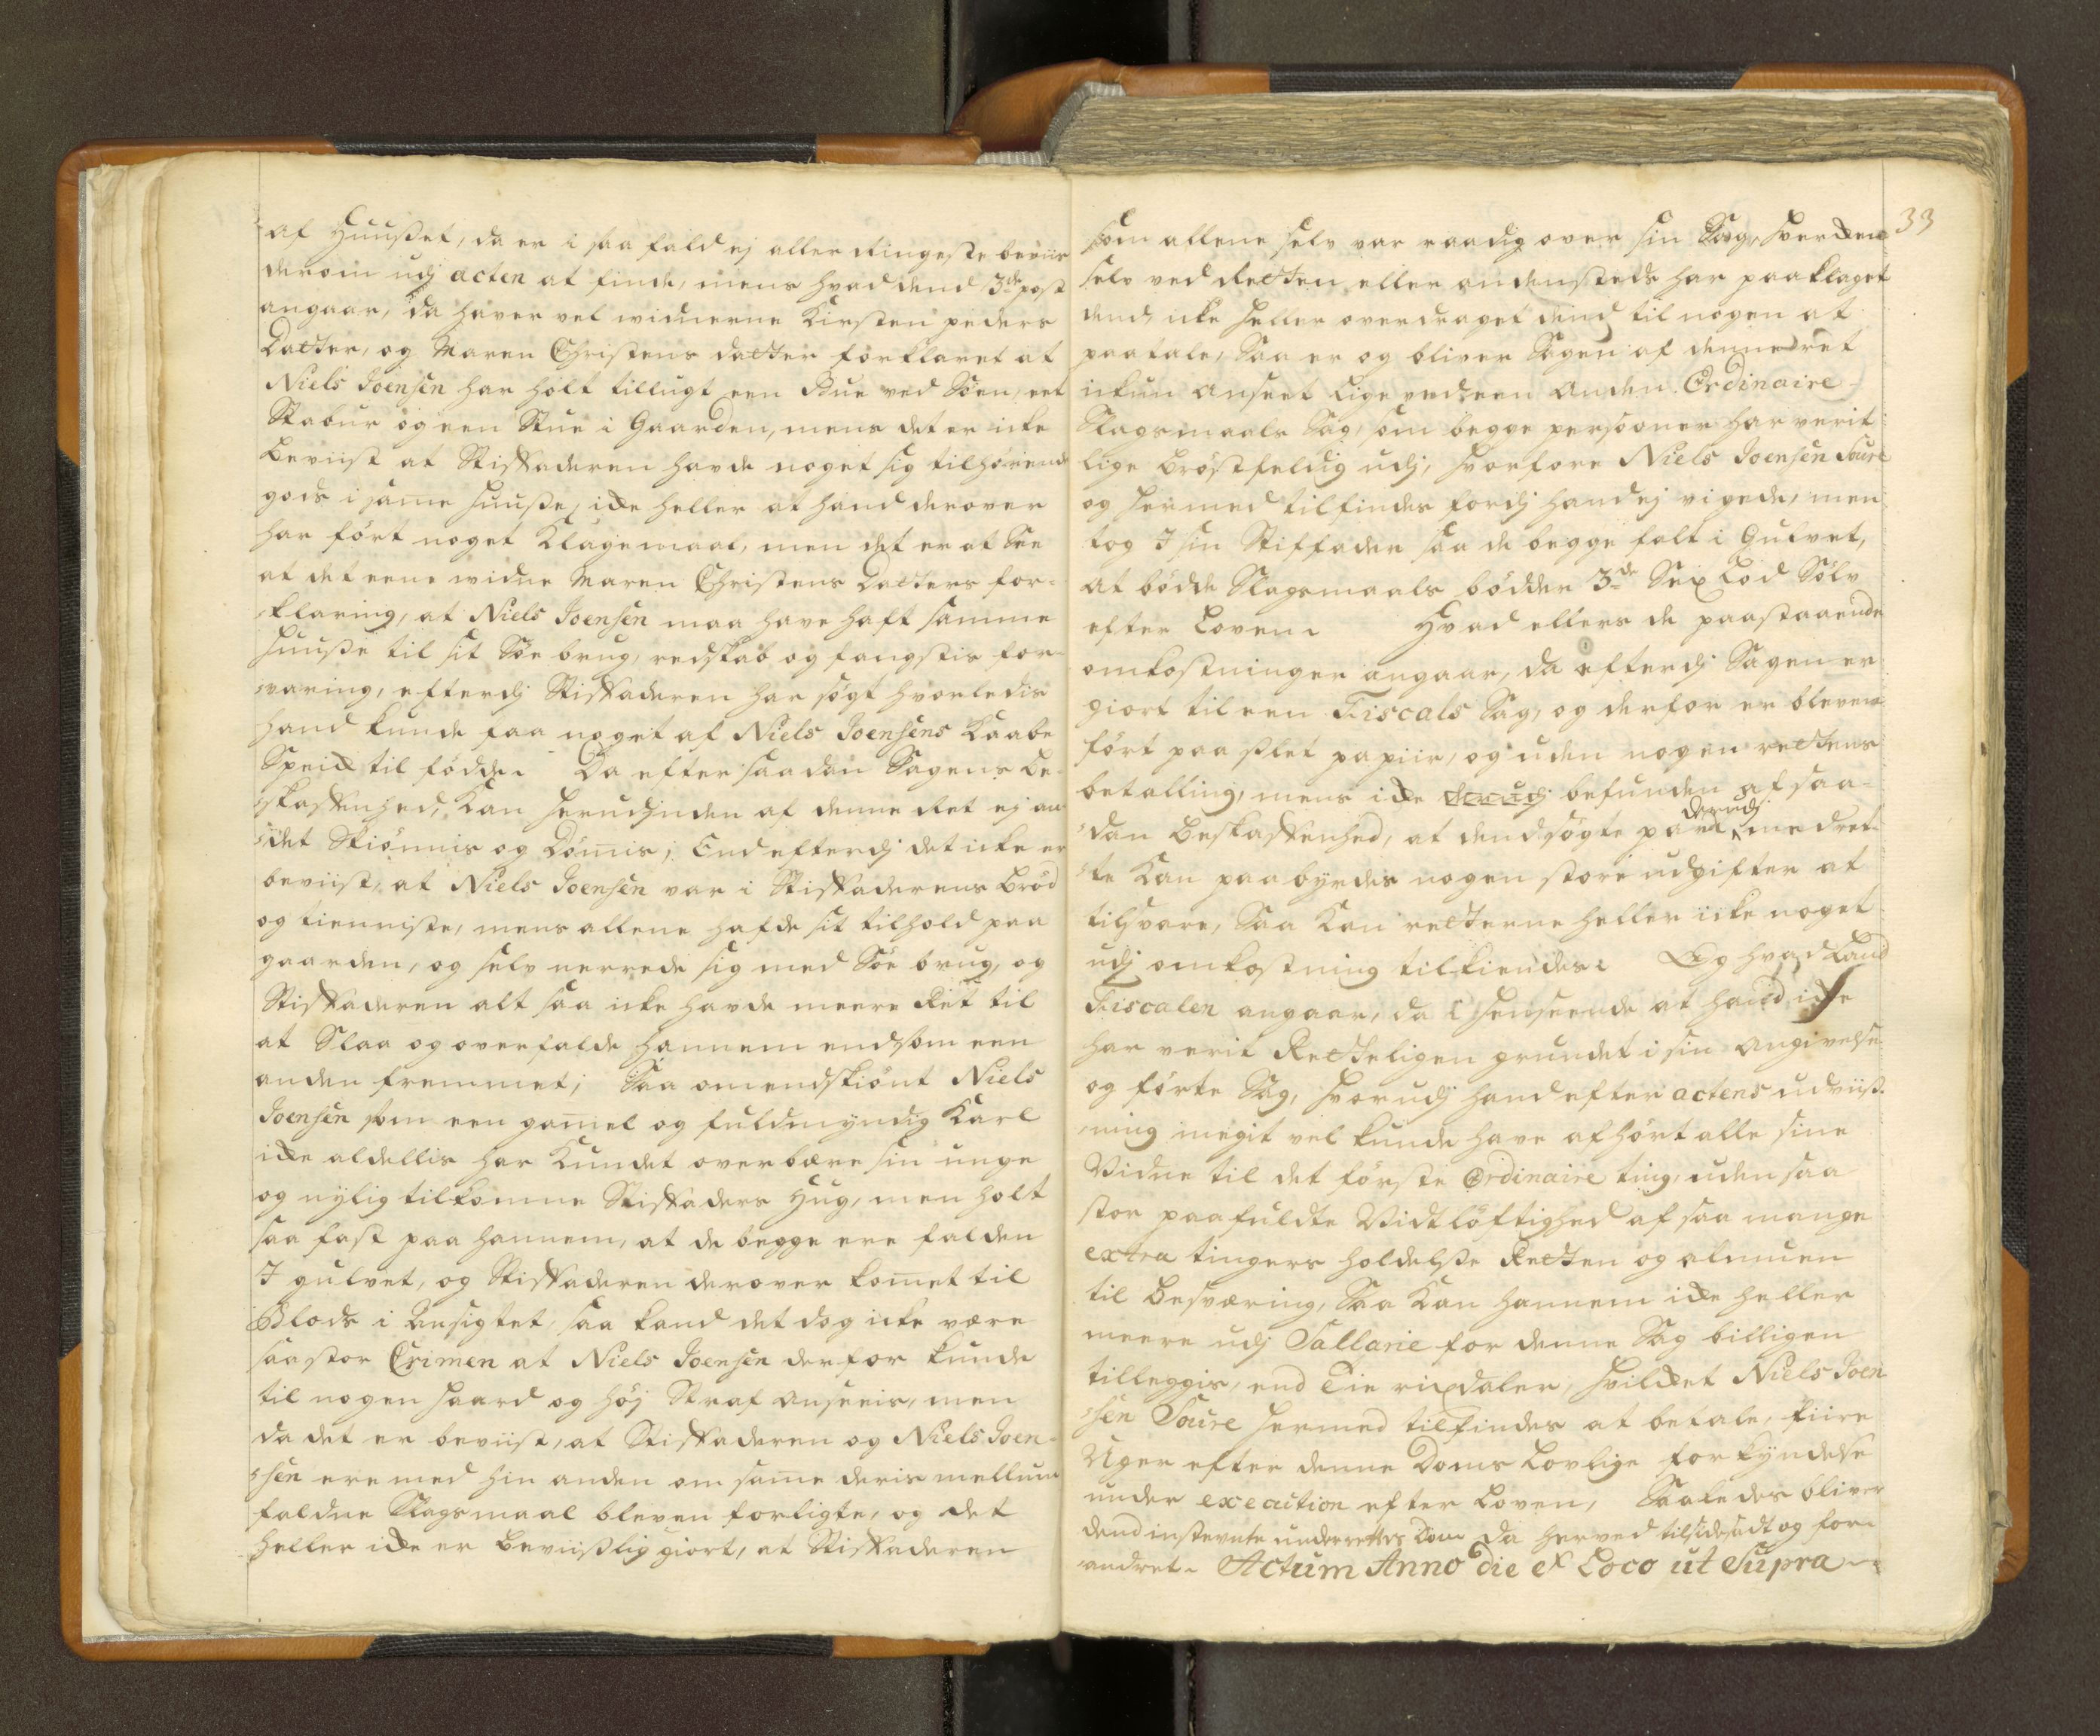 af Huuset, da er i saa fald ej aller Ringeste beviis
derom udj acten at finde, mens hvad dend 3de post
angaar, da haver vel widnerne Kirsten peders
Datter, og Maren Christens datter forklaret at
Niels Joensen har holt tillugt een Bue ved Söen, eet
Stabur og een Stue i Gaarden, mens det er icke
beviist at Stiffaderen havde noget sig tilhörende
gods i samme huuse, icke heller at hand derover
har fört noget Klagemaal, men det er at See
at det eene widne Maren Christens Datters for-
klaring, at Niels Joensen maa have haft samme
huuse til sit Söe brug, redskab og fangstis for-
varing, efterdj Stiffaderen har sögt hvorledis
hand kunde faa noget af Niels Joensens Kaabe
Speick til födde. Da efter saadan Sagens be-
skaffenhed, Kan herudjnden af denne Ret ej an-
det Skiönnis og Dömis, End efterdj det icke er
beviist, at Niels Joensen var i Stiffaderens bröd
og tienniste, mens allene hafde sit tilhold paa
gaarden, og selv nerrede sig med Söe brug, og
Stiffaderen alt saa icke havde meere Ret til
at Slaa og overfalde hannem end som een
anden fremmet; Saa omendskiönt Niels
Joensen som een gamel og fuldmyndig Karl
icke aldellis har Kundet overbære sin unge
og nylig tilkomne Stiffaders Hug, men holt
saa fast paa hannem, at de begge ere falden
I gulvet, og Stiffaderen derover komet til
Blods i Ansigtet, saa kand det dog icke være
saa stor Crimen at Niels Joensen derfor kunde
til nogen haard og höj Straf anseeis, men
da det er beviist, at Stiffaderen og Niels Joen-
sen ere med hin anden om same deris mellum
faldne Slagsmaal bleven forligte, og det
heller icke er beviislig giort, at Stiffaderen
33
som allene selv var raadig over sin Sag, hverken
selv ved Retten eller andensteds har paaklaget
dend, icke heller overdraget dend til nogen at
paatale, Saa er og bliver Sagen af denne ret
ickun anseet lige ved een anden Ordinaire
Slagsmaals Sag, som begge persooner har verit
lige bröstfeldig udj, hvorfore Niels Joensen Soure
og hermed tilfindes fordj hand ej vigede, men
tog I sin Stiffader saa de begge falt i Gulvet,
at bödde Slagsmaals bödder 3de Sex Lod Sölv
efter Loven. Hvad ellers de paastaaende
omkostninger angaar, da efterdj Sagen er
giort til een Fiscals Sag, og derfor er bleven
fört paa slet papiir, og uden nogen rettens
betalling, mens icke derudj befunden af saa-
dan beskaffenhed, at dend sögte part derudj med ret-
te Kan paabyrdes nogen store udgifter at
tilsvare, Saa Kan retterne heller icke noget
udj omkostning tilkiendes. Og hvad Land
Fiscalen angaar, da i henseende at hand icke
har verit Retteligen grundet i sin angivelse
og förte Sag, hvorudj hand efter actens udviis-
ning megit vel kunde have afhört alle sine
Vidne til det förste Ordinaire ting, uden saa
stor paafuldte Vidtlöftighed af saa mange
extra tingers holdelse Retten og almuen
til besværing, Saa Kan hannem icke heller
meere udj Sallarie for denne Sag billigen
tilleggis, end Tie rixdaler, hvilcket Niels Joen
sen Soure hermed tilfindes at betale, fiire
Uger efter denne Doms Lovlige forkyndelse
under execution efter Loven, Saaledes bliver
dend instevnte underrettes Dom da herved tilsidesadt og for-
andret. Actum Anno die et Loco ut Supra